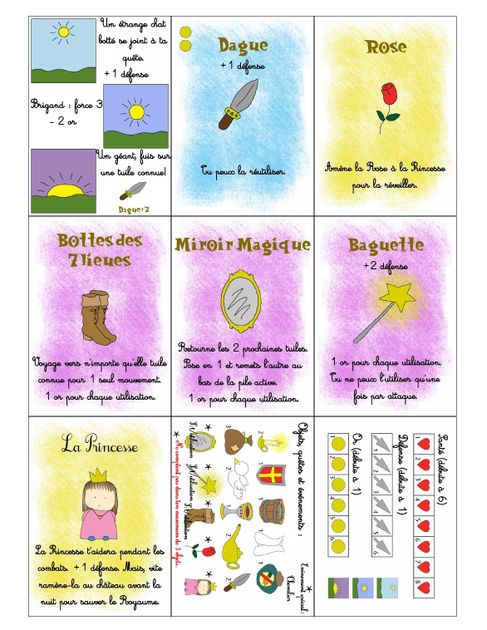 Un étrange chat
botté se joint à ta
quête.
+ 1 défense
Brigand : force 3
- 2 or
Un géant, fuis sur
une tuile connue!
Dague: 2
Dague
+ 1 défense
Tu peux la réutiliser.
Rose
Amène la Rose à la Princesse
pour la réveiller.
Bottes des
7 lieues
Voyage vers n'importe qu'elle tuile
connue pour 1 seul mouvement.
1 or pour chaque utilisation.
Miroir Magique
Retourne les 2 prochaines tuiles.
Pose en 1 et remets l'autre au
bas de la pile active.
1 or pour chaque utilisation.
Baguette
+2 défense
1 or pour chaque utilisation.
Tu ne peux l'utiliser qu'une
fois par attaque.
La Princesse
La Princesse t'aidera pendant les
combats. + 1 défense. Mais, vite
ramène-la au château avant la
nuit pour sauver le Royaume.
Objets, quêtes et événements :
Evénement spécial :
Chaudron
Santé (débute à 6)
1 2 3 4 5 6 7 8
Défense (débute à 1)
1 2 3 4 5 6 7 8
Or (débute à 1)